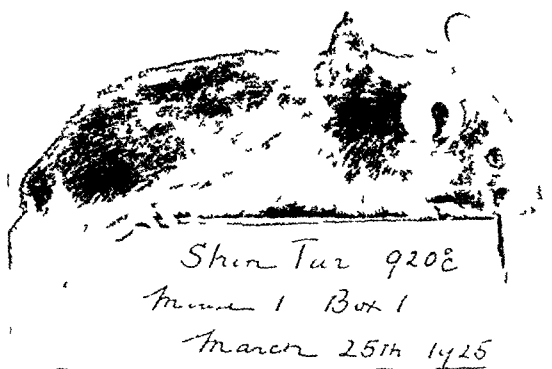 Skin Tur 920E
Mouse 1 Box 1
March 25th 1925